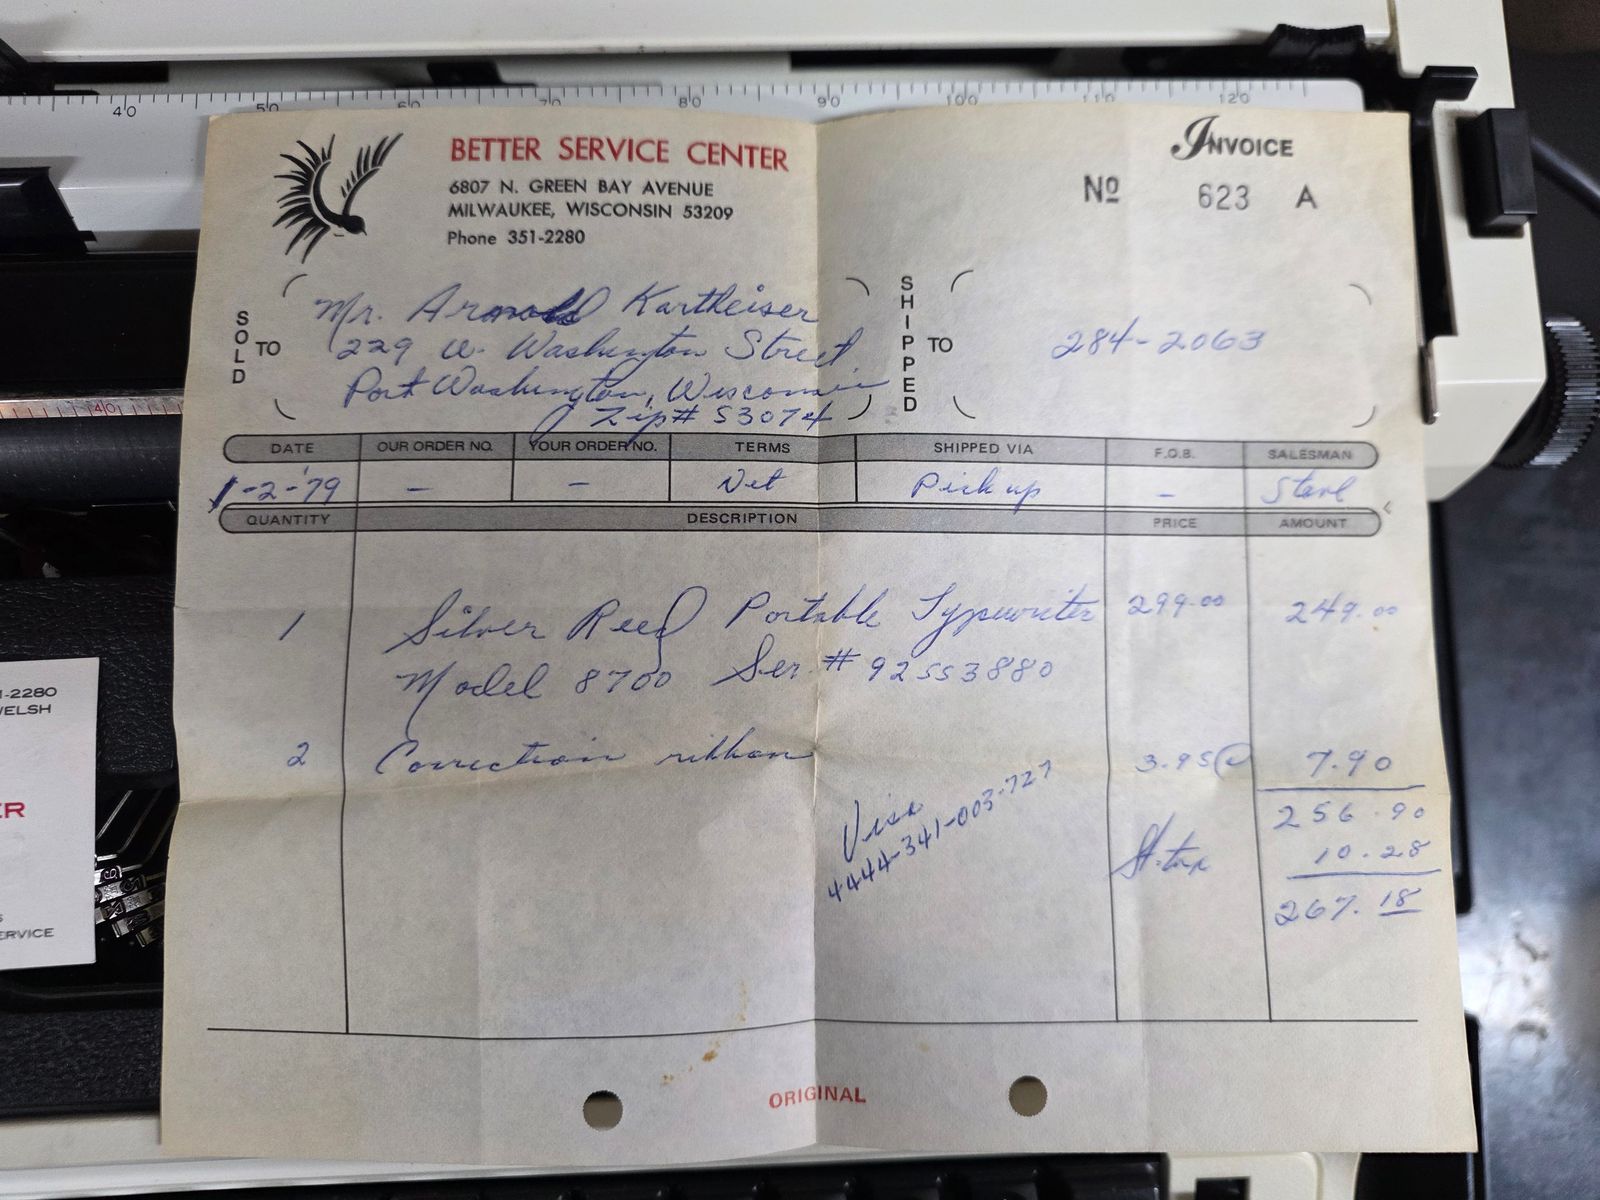 40 50 60 70 80 90 100 110 120
BETTER SERVICE CENTER
6807 N. GREEN BAY AVENUE
MILWAUKEE, WISCONSIN 53209
Phone 351-2280
INVOICE
No 623 A
SOLD TO
Mr. Arnold Kartheiser
229 W. Washington Street
Port Washington, Wisconsin
Zip# 53074
SHIPPED TO
284-2063
40
DATE OUR ORDER NO. YOUR ORDER NO. TERMS SHIPPED VIA F.O.B. SALESMAN
1-2-'79 - - Net Pick up -
QUANTITY DESCRIPTION PRICE AMOUNT
1 Silver Reed Portable Typewriter 299.00 249.00
Model 8700 Ser.# 92553880
2 Correction ribbon 3.95@ 7.90
Visa
4444-341-003-727
256.90
St. tax 10.28
267.18
ORIGINAL
1-2280
WELSH
ER
S
ERVICE